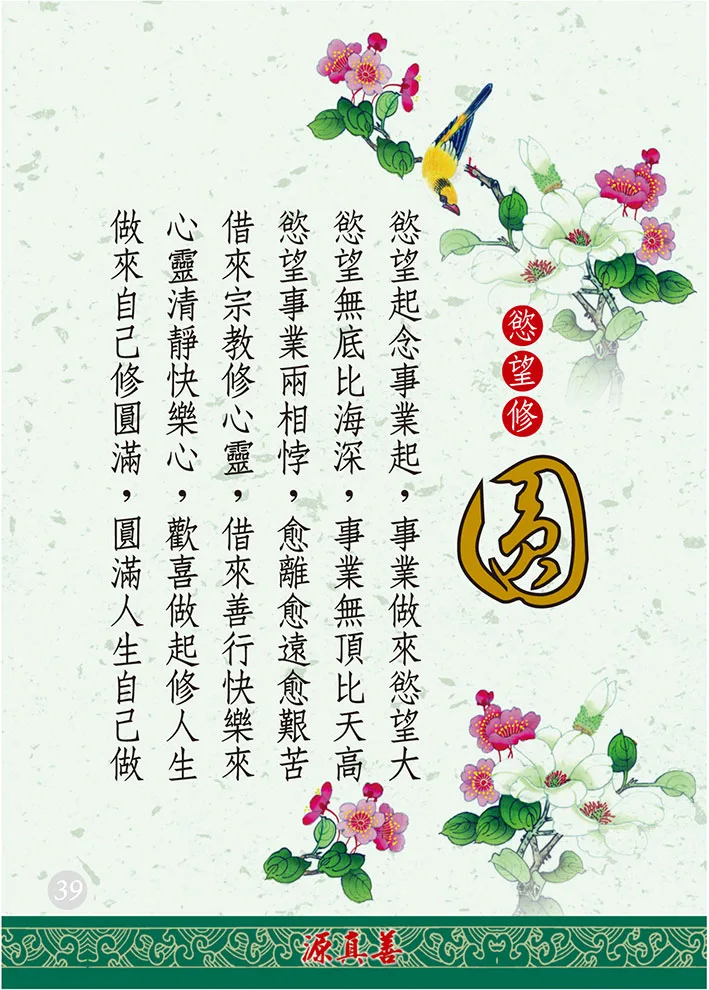 慾望修
圓
慾望起念事業起，事業做來慾望大
慾望無底比海深，事業無頂比天高
慾望事業兩相悖，愈離愈遠愈艱苦
借來宗教修心靈，借來善行快樂來
心靈清靜快樂心，歡喜做起修人生
做來自己修圓滿，圓滿人生自己做
39
源真善